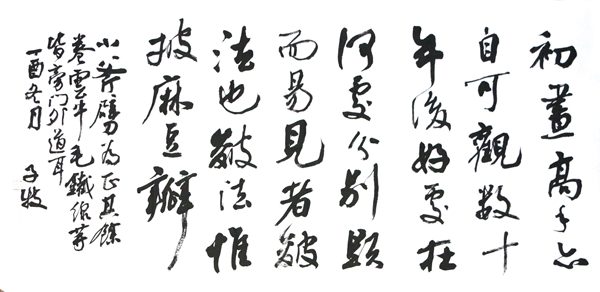 初畫高手亦
自可觀數十
年後好處在
何處分別顯
而易見者皴
法也皴法惟
披麻豆瓣
小斧劈為正其餘
卷雲牛毛鐵線等
皆旁門外道耳
丁酉冬月 子牧